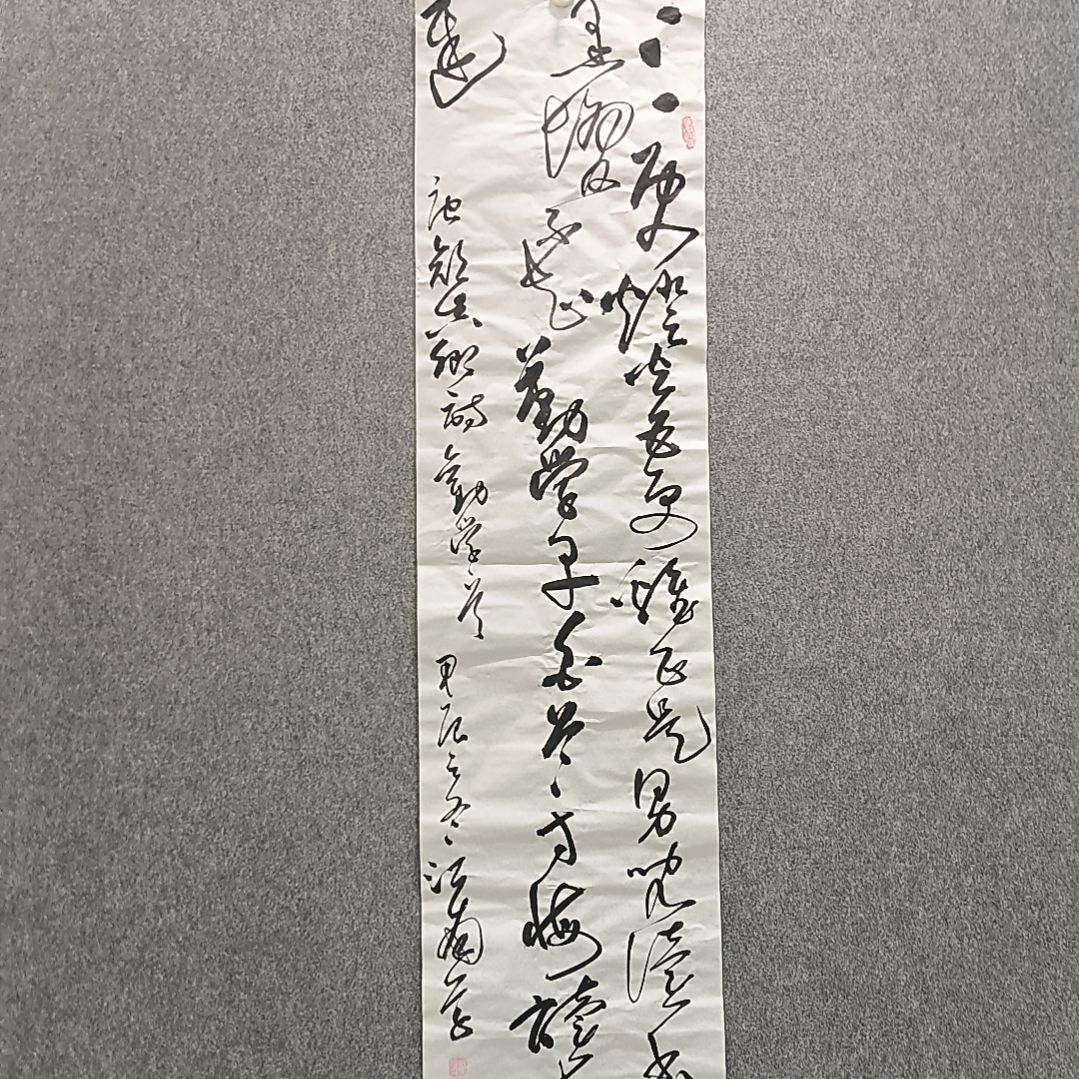 三更燈火五更雞正是男兒讀書
黑髮不知勤學早白首方悔讀
遲
唐顏真卿詩勸學首 甲辰之冬江南